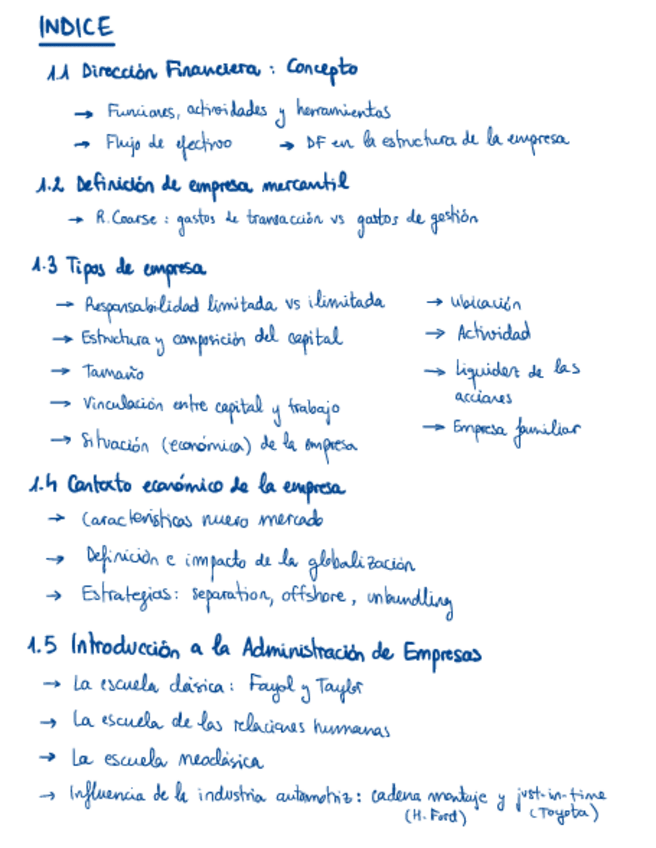 INDICE
1.1 Dirección Financiera : Concepto
→ Funciones, actividades y herramientas
→ Flujo de efectivo → DF en la estructura de la empresa
1.2 Definición de empresa mercantil
→ R. Coarse : gastos de transacción vs gastos de gestión
1.3 Tipos de empresa
→ Responsabilidad limitada vs ilimitada → Ubicación
→ Estructura y composición del capital → Actividad
→ Tamaño → Liquidez de las acciones
→ Vinculación entre capital y trabajo → Empresa familiar
→ Situación (económica) de la empresa
1.4 Contexto económico de la empresa
→ Características nuevo mercado
→ Definición e impacto de la globalización
→ Estrategias: separation, offshore, unbundling
1.5 Introducción a la Administración de Empresas
→ La escuela clásica: Fayol y Taylor
→ La escuela de las relaciones humanas
→ La escuela neoclásica
→ Influencia de la industria automotriz: cadena montaje y just-in-time
(H. Ford) (Toyota)